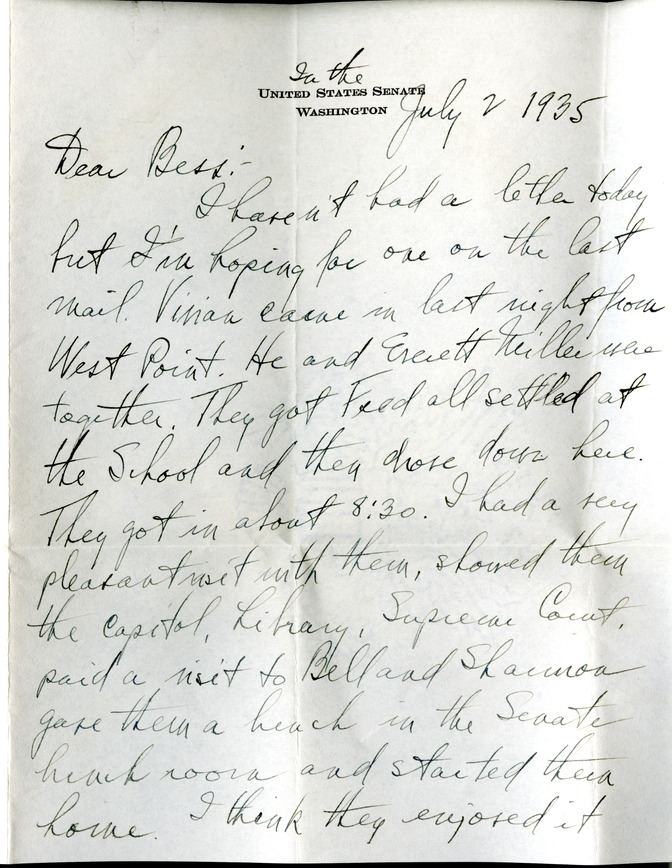 In the
UNITED STATES SENATE
WASHINGTON
July 2 1935
Dear Bess:-
I haven't had a letter today
but I'm hoping for one on the last
mail. Vivian came in last night from
West Point. He and Everett Miller were
together. They got Fred all settled at
the School and then drove down here.
They got in about 8:30. I had a very
pleasant visit with them, showed them
the capitol, Library, Supreme Court,
paid a visit to Bell and Shannon
gave them a lunch in the Senate
lunch room and started them
home. I think they enjoyed it